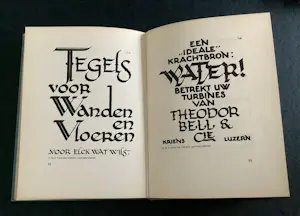 TEGELS
VOOR
WANDEN
EN
VLOEREN
VOOR ELCK WAT WILS.
EEN
„IDEALE"
KRACHTBRON:
WATER!
BETREKT UW
TURBINES
VAN
THEODOR
BELL &
CIE
KRIENS LUZERN